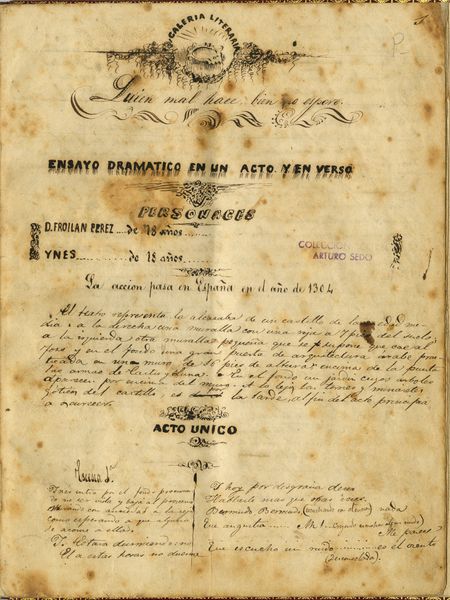 GALERIA LITERARIA
Quien mal hace, bien no espere.
ENSAYO DRAMATICO EN UN ACTO Y EN VERSO
PERSONAGES
D. FROILAN PEREZ .... de 78 años
YNES ........ de 18 años
COLECCION
ARTURO SEDO
La accion pasa en España en el año de 1364
El teatro representa la alcazaba de un castillo de la edad me-
dia: a la derecha una muralla con una reja a 7 pies del suelo,
a la izquierda otra muralla pequeña que se supone que cae al
foso y en el fondo una gran puerta de arquitectura arabe prac-
ticada en un muro de 16 pies de altura: encima de la puerta
las armas de Castro y Luna. En el fondo un jardin cuyos arboles
aparecen por encima del muro. A lo lejos las torres y minaretes
goticos del castillo, es la tarde, al fin del acto principia
a oscurecer
ACTO UNICO
Escena 1ª
Ines entra por el fondo procuran-
do no ser vista y baja al proscenio
mirando con ansiedad a la reja
como esperando a que alguien
se asome a ella.
I. Estara durmiendo no
El a estas horas no duerme
Y hoy por desgracia deseo
Hablarle mas que otras veces.
Bermudo Bermudo (escuchando un momento) nada
Que angustia .... Ah!
Me parece
Que escucho un ruido ........ es el viento
(desconsolada).